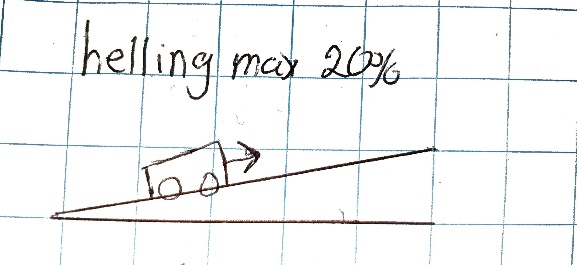 helling max 20%